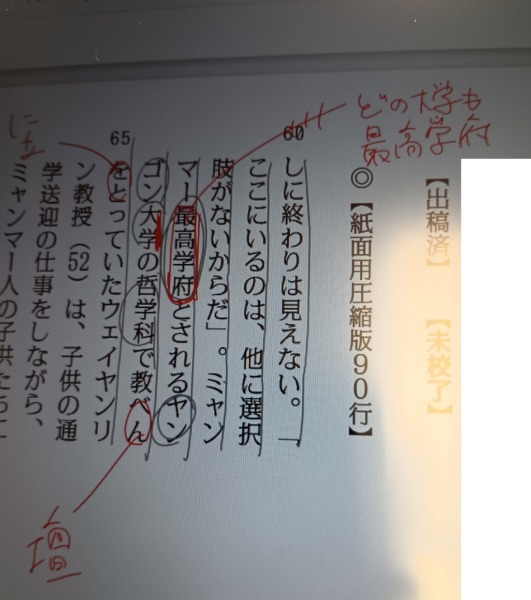 【出稿済】 【未校了】
◎【紙面用圧縮版90行】
どの大学も
最高学府
60
しに終わりは見えない。「
ここにいるのは、他に選択
肢がないからだ」。ミャン
マー最高学府とされるヤン
ゴン大学の哲学科で教べん
壇
65
をとっていたウェイヤンリ
に立
ン教授(52)は、子供の通
学送迎の仕事をしながら、
ミャンマー人の子供たちに